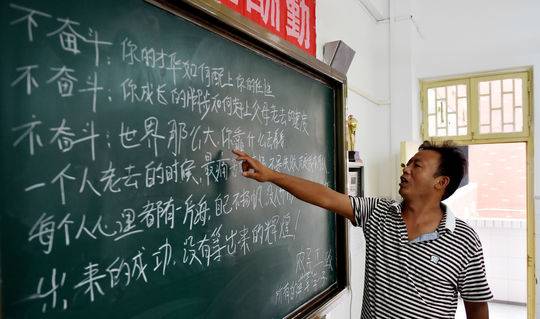 酬勤
不奋斗:你的才华如何配上你的任性
不奋斗:你成长的脚步如何赶上父母老去的速度
不奋斗:世界那么大你靠什么去看看
一个人老去的时候,最痛
每个人心理都有一片海,自己不扬帆,没人
出来的成功,没有等出来的辉煌!